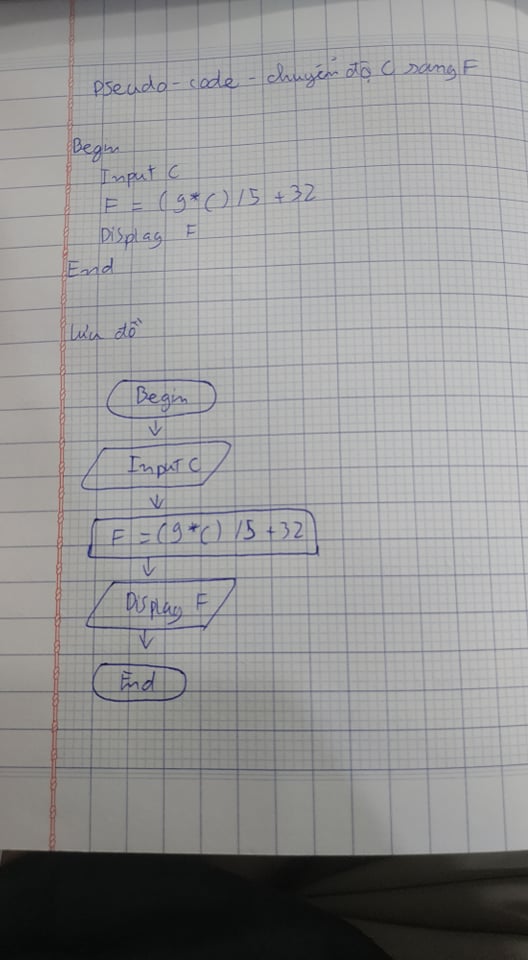 Pseudo-code - chuyển độ C sang F
Begin
Input C
F = (9*C)/5 + 32
Display F
End
Lưu đồ
Begin
Input C
F = (9*C)/5 + 32
Display F
End